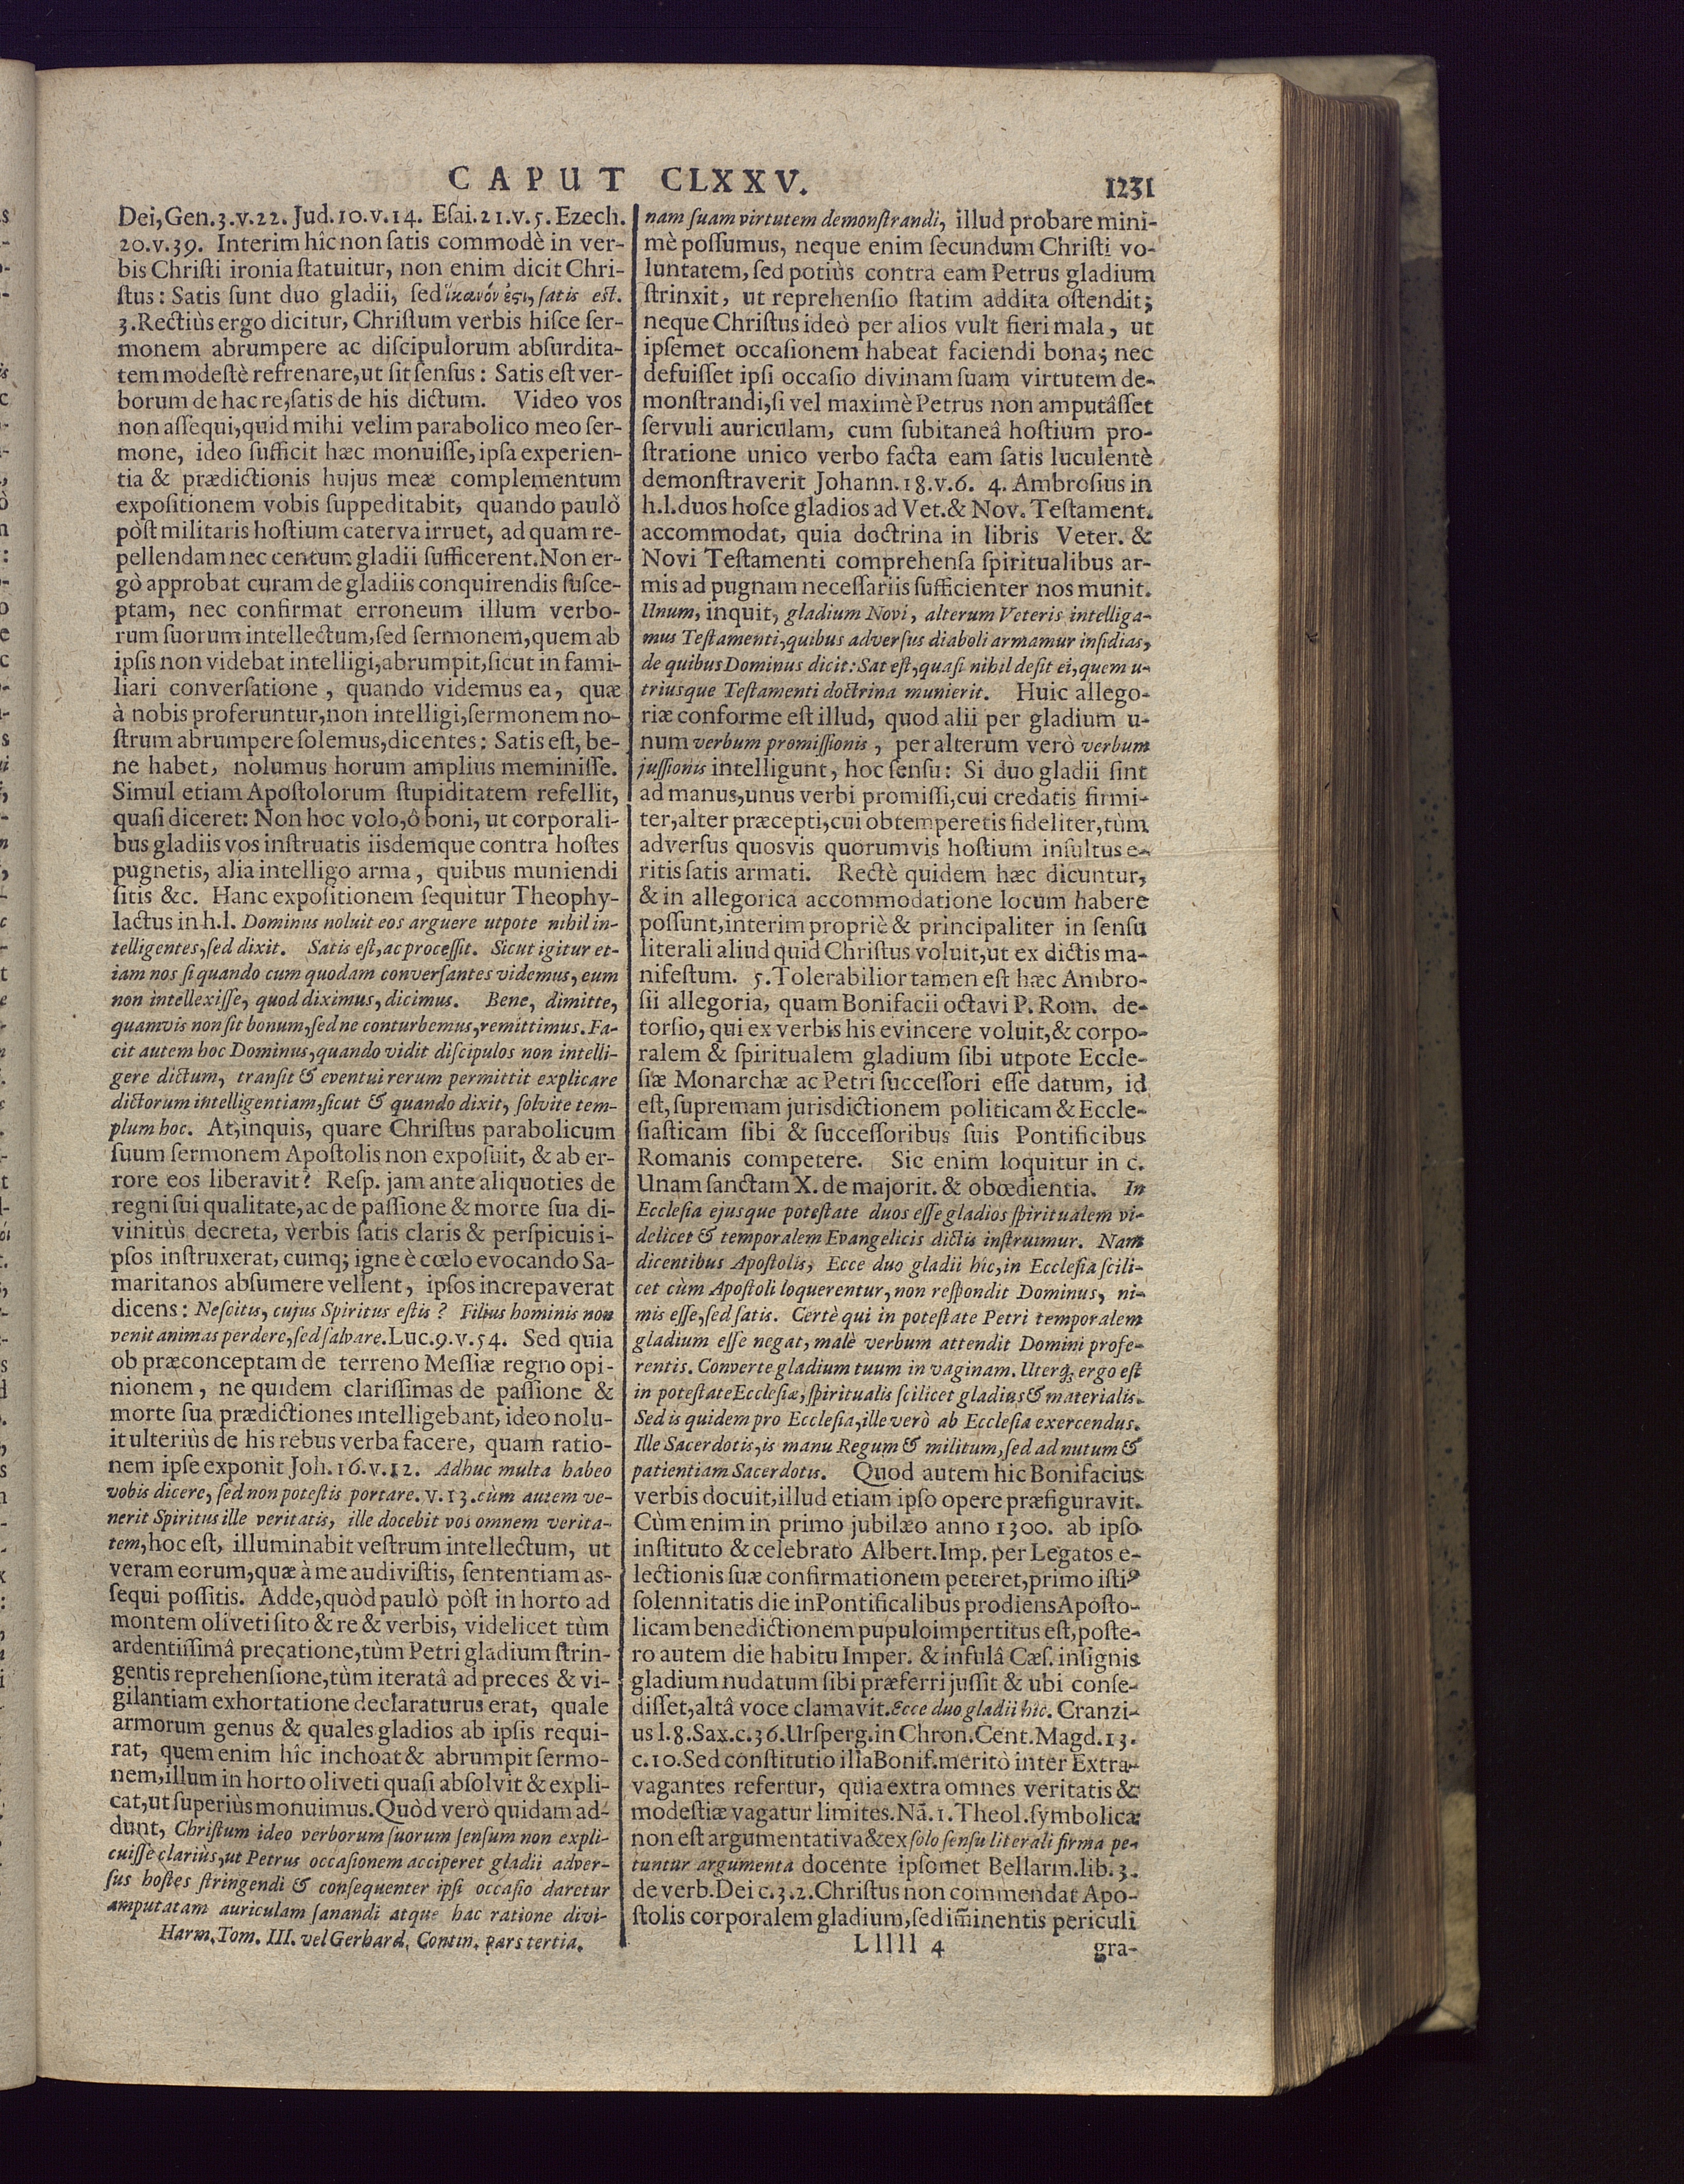 CAPUT CLXXV.
1231
Dei, Gen.3.v.22. Jud.10.v.14. Eſai.21.v.5. Ezech.
20.v.39. Interim hîc non ſatis commodè in ver-
bis Chriſti ironia ſtatuitur, non enim dicit Chri-
ſtus: Satis ſunt duo gladii, ſed ἱκανόν ἐϛι, ſatis eſt.
3. Rectiùs ergo dicitur, Chriſtum verbis hiſce ſer-
monem abrumpere ac diſcipulorum abſurdita-
tem modeſtè refrenare, ut ſit ſenſus: Satis eſt ver-
borum de hac re, ſatis de his dictum. Video vos
non aſſequi, quid mihi velim parabolico meo ſer-
mone, ideo ſufficit hæc monuiſſe, ipſa experien-
tia & prædictionis hujus meæ complementum
expoſitionem vobis ſuppeditabit, quando paulò
pòſt militaris hoſtium caterva irruet, ad quam re-
pellendam nec centum gladii ſufficerent. Non er-
gò approbat curam de gladiis conquirendis ſuſce-
ptam, nec confirmat erroneum illum verbo-
rum ſuorum intellectum, ſed ſermonem, quem ab
ipſis non videbat intelligi, abrumpit, ſicut in fami-
liari converſatione, quando videmus ea, quæ
à nobis proferuntur, non intelligi, ſermonem no-
ſtrum abrumpere ſolemus, dicentes: Satis eſt, be-
ne habet, nolumus horum amplius meminiſſe.
Simul etiam Apoſtolorum ſtupiditatem refellit,
quaſi diceret: Non hoc volo, ô boni, ut corporali-
bus gladiis vos inſtruatis iisdemque contra hoſtes
pugnetis, alia intelligo arma, quibus muniendi
ſitis &c. Hanc expoſitionem ſequitur Theophy-
lactus in h.l. Dominus noluit eos arguere utpote nihil in-
telligentes, ſed dixit. Satis eſt, ac proceſſit. Sicut igitur et-
iam nos ſi quando cum quodam converſantes videmus, eum
non intellexiſſe, quod diximus, dicimus. Bene, dimitte,
quamvis non ſit bonum, ſed ne conturbemus, remittimus. Fa-
cit autem hoc Dominus, quando vidit diſcipulos non intelli-
gere dictum, tranſit & eventui rerum permittit explicare
dictorum intelligentiam, ſicut & quando dixit, ſolvite tem-
plum hoc. At, inquis, quare Chriſtus parabolicum
ſuum ſermonem Apoſtolis non expoſuit, & ab er-
rore eos liberavit? Reſp. jam ante aliquoties de
regni ſui qualitate, ac de paſſione & morte ſua di-
vinitùs decreta, verbis ſatis claris & perſpicuis i-
pſos inſtruxerat, cumq; igne è cœlo evocando Sa-
maritanos abſumere vellent, ipſos increpaverat
dicens: Neſcitis, cujus Spiritus eſtis? Filius hominis non
venit animas perdere, ſed ſalvare. Luc.9.v.54. Sed quia
ob præconceptam de terreno Meſſiæ regno opi-
nionem, ne quidem clariſſimas de paſſione &
morte ſua prædictiones intelligebant, ideo nolu-
it ulteriùs de his rebus verba facere, quam ratio-
nem ipſe exponit Joh.16.v.12. Adhuc multa habeo
vobis dicere, ſed non poteſtis portare. v.13. cùm autem ve-
nerit Spiritus ille veritatis, ille docebit vos omnem verita-
tem, hoc eſt, illuminabit veſtrum intellectum, ut
veram eorum, quæ à me audiviſtis, ſententiam aſ-
ſequi poſſitis. Adde, quòd paulò pòſt in horto ad
montem oliveti ſito & re & verbis, videlicet tùm
ardentiſſimâ precatione, tùm Petri gladium ſtrin-
gentis reprehenſione, tùm iteratâ ad preces & vi-
gilantiam exhortatione declaraturus erat, quale
armorum genus & quales gladios ab ipſis requi-
rat, quem enim hîc inchoat & abrumpit ſermo-
nem, illum in horto oliveti quaſi abſolvit & expli-
cat, ut ſuperiùs monuimus. Quòd verò quidam ad-
dunt, Chriſtum ideo verborum ſuorum ſenſum non expli-
cuiſſe clariùs, ut Petrus occaſionem acciperet gladii adver-
ſus hoſtes ſtringendi & conſequenter ipſi occaſio daretur
amputatam auriculam ſanandi atque hac ratione divi-
Harm. Tom. III. vel Gerhard. Contin. pars tertia.
nam ſuam virtutem demonſtrandi, illud probare mini-
mè poſſumus, neque enim ſecundum Chriſti vo-
luntatem, ſed potiùs contra eam Petrus gladium
ſtrinxit, ut reprehenſio ſtatim addita oſtendit;
neque Chriſtus ideò per alios vult fieri mala, ut
ipſemet occaſionem habeat faciendi bona; nec
defuiſſet ipſi occaſio divinam ſuam virtutem de-
monſtrandi, ſi vel maximè Petrus non amputâſſet
ſervuli auriculam, cum ſubitaneâ hoſtium pro-
ſtratione unico verbo facta eam ſatis luculentè
demonſtraverit Johann.18.v.6. 4. Ambroſius in
h.l. duos hoſce gladios ad Vet. & Nov. Teſtament.
accommodat, quia doctrina in libris Veter. &
Novi Teſtamenti comprehenſa ſpiritualibus ar-
mis ad pugnam neceſſariis ſufficienter nos munit.
Unum, inquit, gladium Novi, alterum Veteris intelliga-
mus Teſtamenti, quibus adverſus diaboli armamur inſidias,
de quibus Dominus dicit: Sat eſt, quaſi nihil deſit ei, quem u-
triusque Teſtamenti doctrina munierit. Huic allego-
riæ conforme eſt illud, quod alii per gladium u-
num verbum promiſſionis, per alterum verò verbum
juſſionis intelligunt, hoc ſenſu: Si duo gladii ſint
ad manus, unus verbi promiſſi, cui credatis firmi-
ter, alter præcepti, cui obtemperetis fideliter, tùm
adverſus quosvis quorumvis hoſtium inſultus e-
ritis ſatis armati. Rectè quidem hæc dicuntur,
& in allegorica accommodatione locum habere
poſſunt, interim propriè & principaliter in ſenſu
literali aliud quid Chriſtus voluit, ut ex dictis ma-
nifeſtum. 5. Tolerabilior tamen eſt hæc Ambro-
ſii allegoria, quam Bonifacii octavi P. Rom. de-
torſio, qui ex verbis his evincere voluit, & corpo-
ralem & ſpiritualem gladium ſibi utpote Eccle-
ſiæ Monarchæ ac Petri ſucceſſori eſſe datum, id
eſt, ſupremam jurisdictionem politicam & Eccle-
ſiaſticam ſibi & ſucceſſoribus ſuis Pontificibus
Romanis competere. Sic enim loquitur in c.
Unam ſanctam X. de majorit. & obœdientia. In
Eccleſia ejusque poteſtate duos eſſe gladios ſpiritualem vi-
delicet & temporalem Evangelicis dictis inſtruimur. Nam
dicentibus Apoſtolis, Ecce duo gladii hic, in Eccleſia ſcili-
cet cùm Apoſtoli loquerentur, non reſpondit Dominus, ni-
mis eſſe, ſed ſatis. Certè qui in poteſtate Petri temporalem
gladium eſſe negat, malè verbum attendit Domini profe-
rentis. Converte gladium tuum in vaginam. Uterq; ergo eſt
in poteſtate Eccleſiæ, ſpiritualis ſcilicet gladius & materialis.
Sed is quidem pro Eccleſia, ille verò ab Eccleſia exercendus.
Ille Sacerdotis, is manu Regum & militum, ſed ad nutum &
patientiam Sacerdotis. Quod autem hic Bonifacius
verbis docuit, illud etiam ipſo opere præfiguravit.
Cùm enim in primo jubilæo anno 1300. ab ipſo
inſtituto & celebrato Albert. Imp. per Legatos e-
lectionis ſuæ confirmationem peteret, primo iſtiꝰ
ſolennitatis die in Pontificalibus prodiens Apoſto-
licam benedictionem pupulo impertitus eſt, poſte-
ro autem die habitu Imper. & infulâ Cæſ. inſignis
gladium nudatum ſibi præferri juſſit & ubi conſe-
diſſet, altâ voce clamavit. Ecce duo gladii hic. Cranzi-
us l.8. Sax.c.36. Urſperg. in Chron. Cent. Magd.13.
c.10. Sed conſtitutio illa Bonif. meritò inter Extra-
vagantes refertur, quia extra omnes veritatis &
modeſtiæ vagatur limites. Nã. 1. Theol. ſymbolica
non eſt argumentativa & ex ſolo ſenſu literali firma pe-
tuntur argumenta docente ipſomet Bellarm. lib.3.
de verb. Dei c.3. 2. Chriſtus non commendat Apo-
ſtolis corporalem gladium, ſed im̃inentis periculi
Lllll 4
gra-